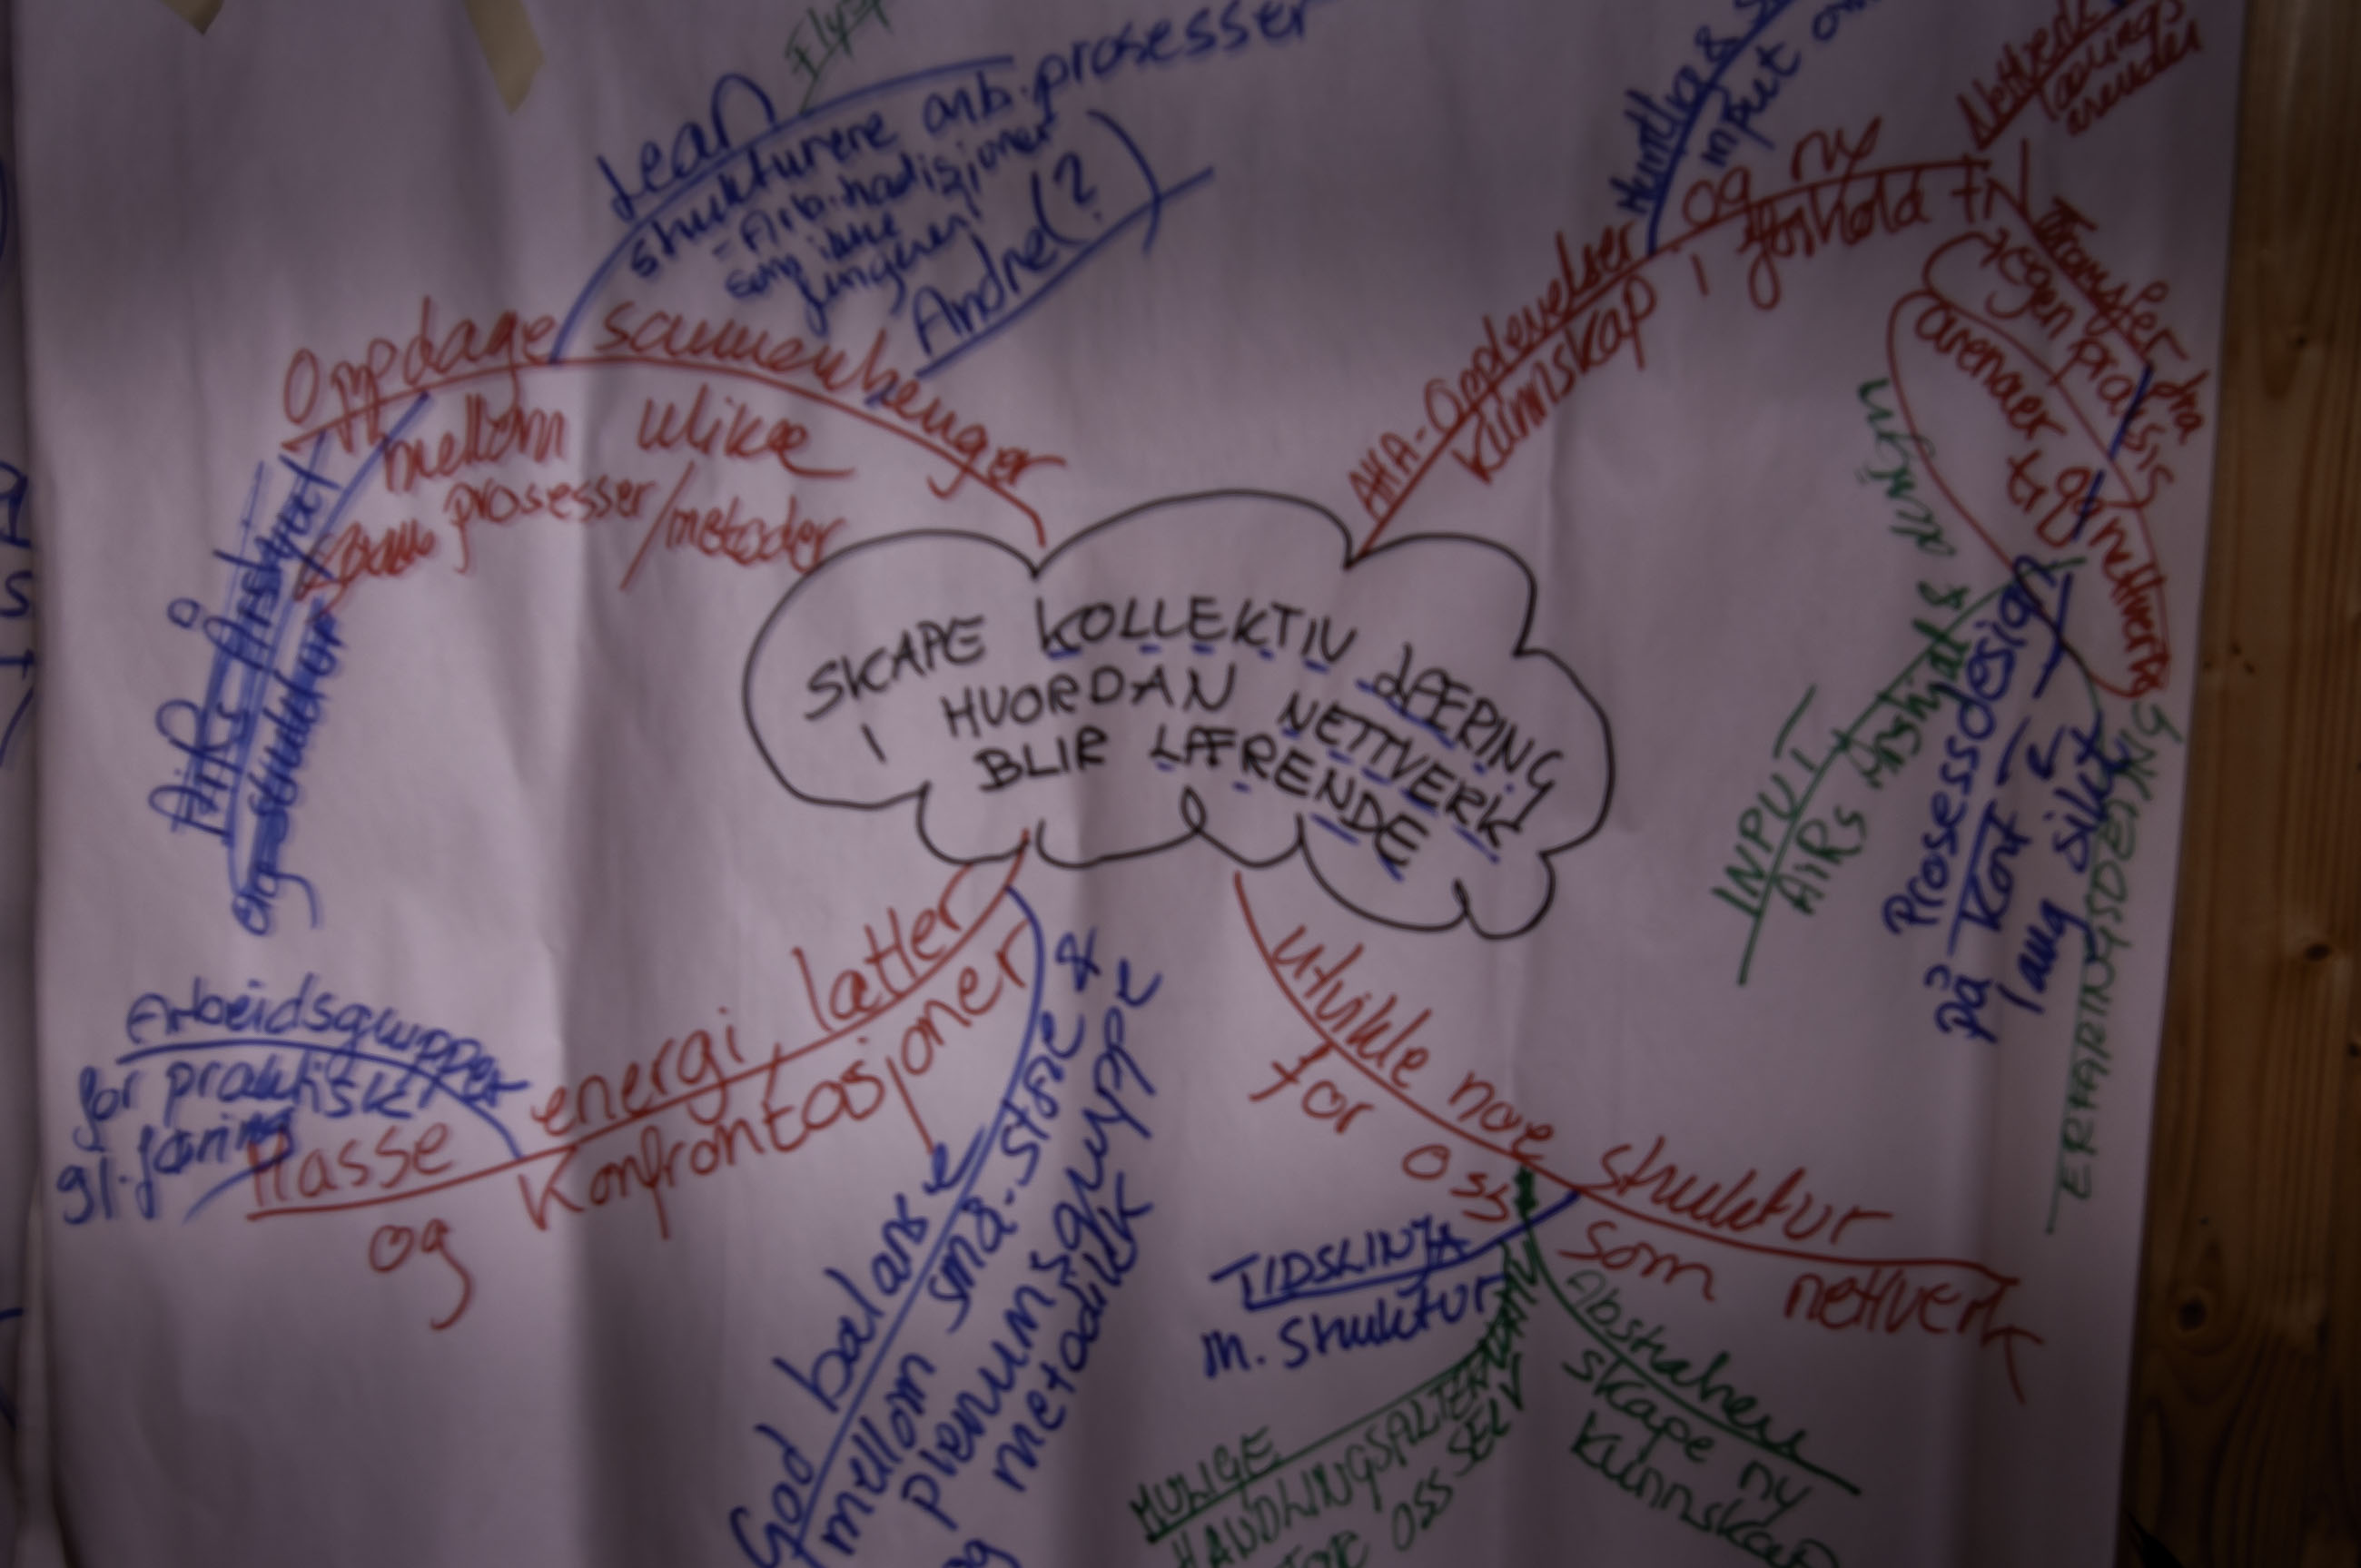 SKAPE KOLLEKTIV LÆRING
I HVORDAN NETTVERK
BLIR LÆRENDE
Oppdage sammenhenger
mellom ulike
prosesser/metoder
Lean
strukturere arb.prosesser
som ikke
fungerer
Andre(?)
AiRs Årshjul
og struktur
AHA-Opplevelser og ny
kunnskap i forhold til
input
Nettverk
Transfer fra
egen praksis
arenaer
nettverk
INPUT
AiRs Årshjul &
Prosessdesign
på kort &
lang sikt
ERFARINGSDELING
Masse energi, latter
og konfrontasjoner
Arbeidsgrupper
for praktisk
gj.føring
God balanse
mellom små- store &
plenumsgruppe
og metodikk
Utvikle noe struktur
for oss som nettverk
TIDSLINJA
m. struktur
MULIGE
HANDLINGSALTERNATIV
OSS SELV
Abstrahere
skape ny
kunnskap